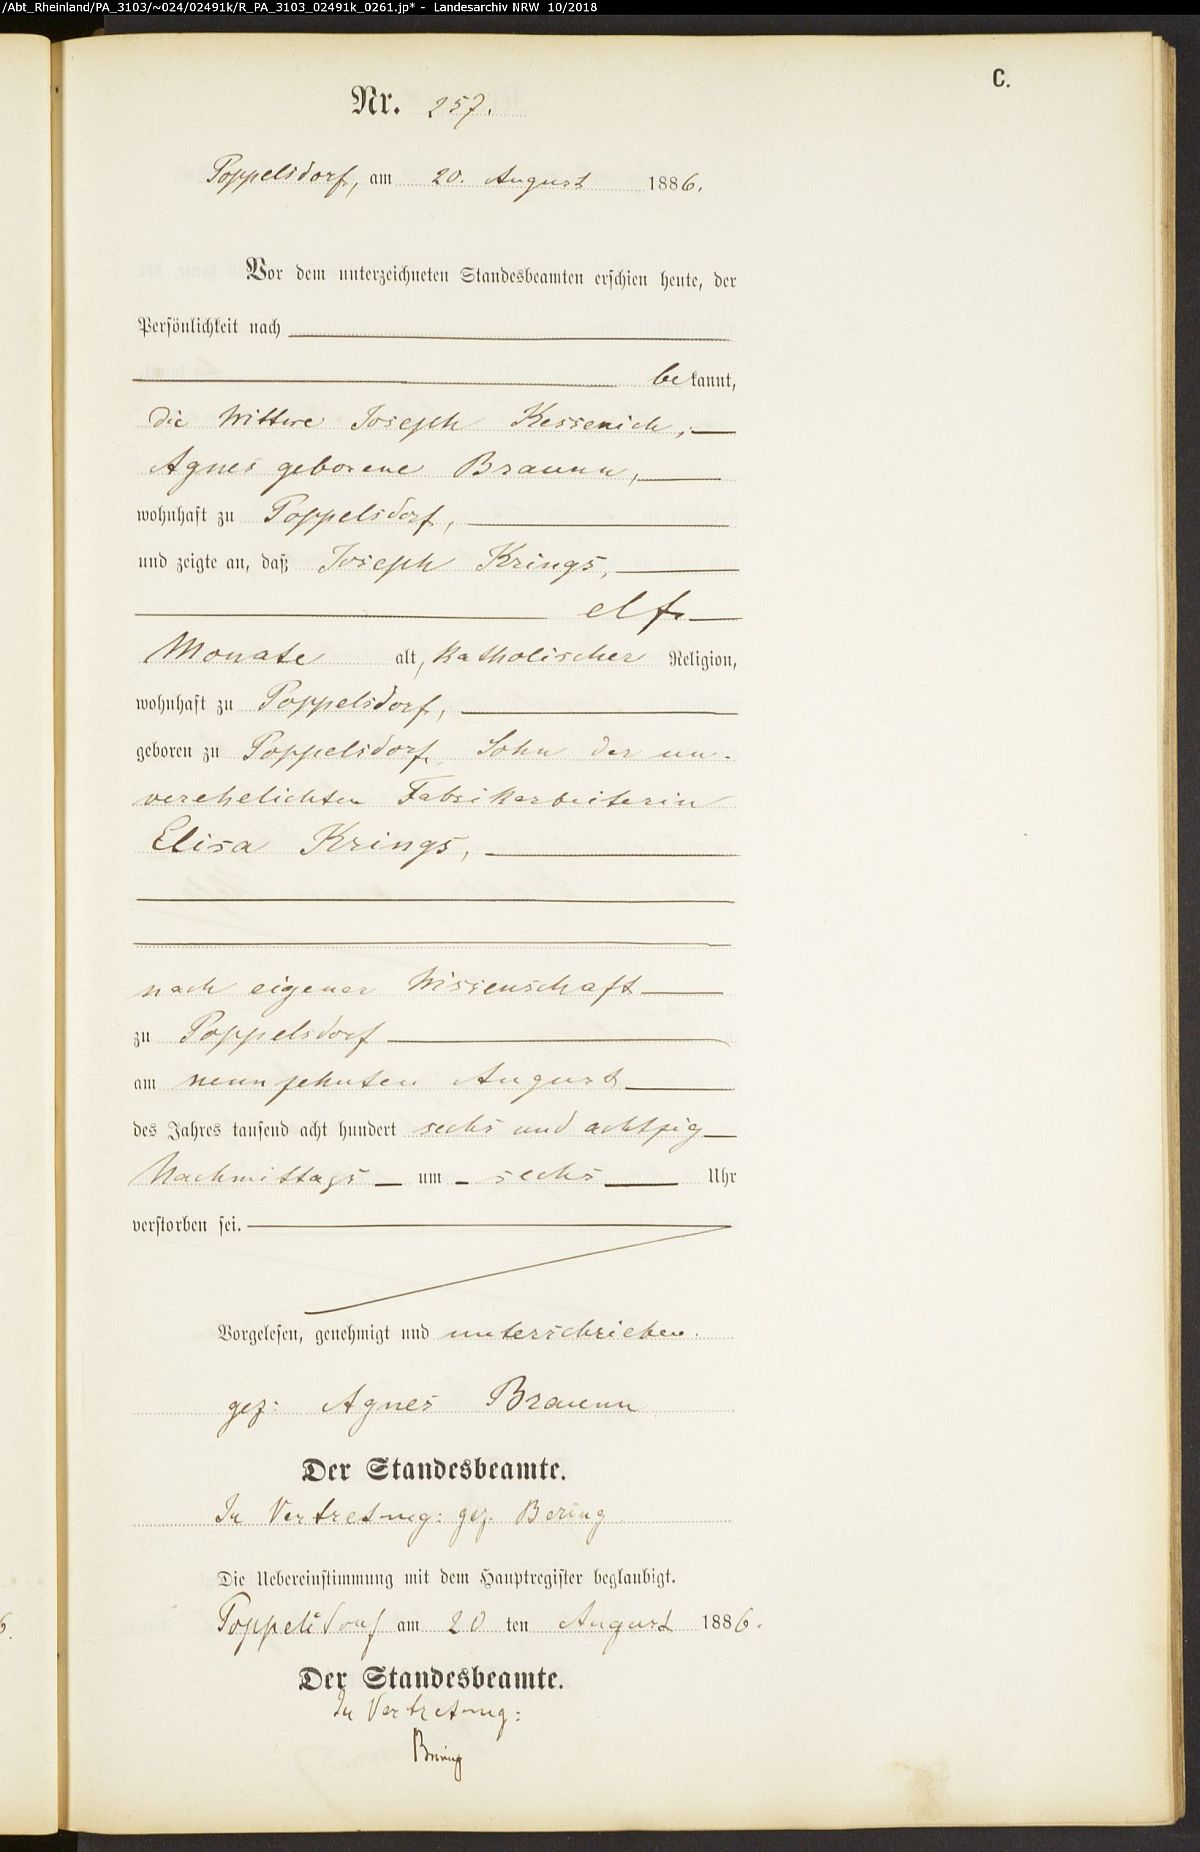 /Abt_Rheinland/PA_3103/~024/02491k/R_PA_3103_02491k_0261.jp* - Landesarchiv NRW 10/2018
C.
Nr. 257.
Poppelsdorf, am 20. August 1886.
Vor dem unterzeichneten Standesbeamten erschien heute, der
Persönlichkeit nach
bekannt,
die Wittwe Joseph Kessenich,
Agnes geborene Braunn,
wohnhaft zu Poppelsdorf,
und zeigte an, daß Joseph Krings,
elf
Monate alt, katholischer Religion,
wohnhaft zu Poppelsdorf,
geboren zu Poppelsdorf, Sohn der un-
verehelichten Fabrikarbeiterin
Elisa Krings,
nach eigener Wissenschaft
zu Poppelsdorf
am neunzehnten August
des Jahres tausend acht hundert sechs und achtzig
Nachmittags um sechs Uhr
verstorben sei.
Vorgelesen, genehmigt und unterschrieben.
gez: Agnes Braunn
Der Standesbeamte.
In Vertretung: gez. Bering
Die Uebereinstimmung mit dem Hauptregister beglaubigt.
Poppelsdorf am 20 ten August 1886.
Der Standesbeamte.
In Vertretung:
Bering
6.